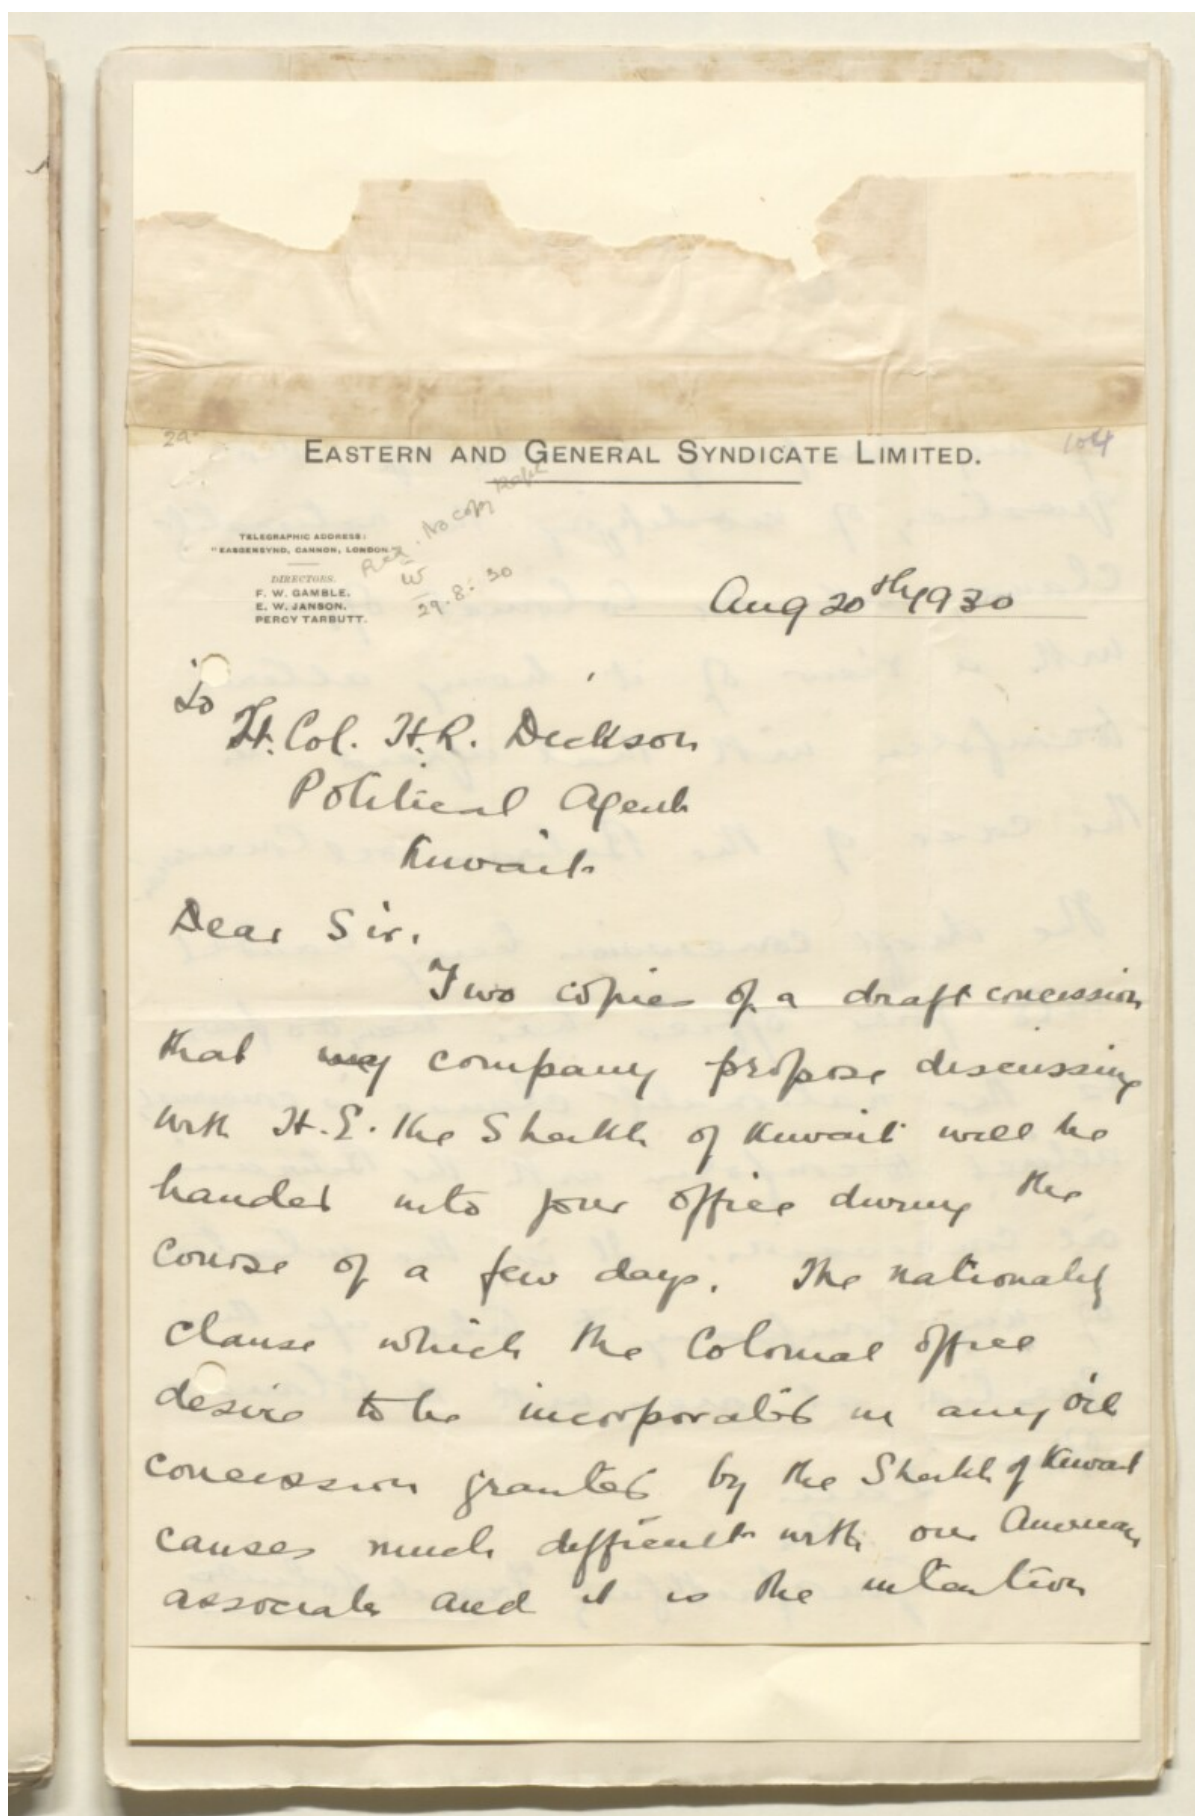 29.
EASTERN AND GENERAL SYNDICATE LIMITED.
104
TELEGRAPHIC ADDRESS:
"EASGENSYND, CANNON, LONDON."
DIRECTORS.
F. W. GAMBLE.
E. W. JANSON.
PERCY TARBUTT.
No copy kept
29.8.30
Aug 20th 1930
To
Lt. Col. H.R. Dickson
Political Agent
Kuwait
Dear Sir.
Two copies of a draft concession
that my company propose discussing
with H.E. the Sheikh of Kuwait will be
handed into your office during the
course of a few days. The nationality
clause which the Colonial office
desire to be incorporated in any oil
concession granted by the Sheikh of Kuwait
causes much difficulty with our American
associates and it is the intention